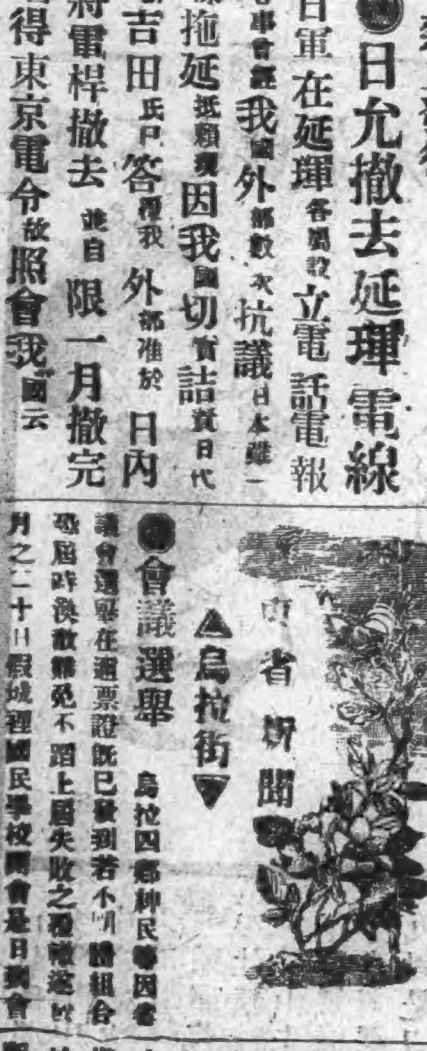 日允撤去延琿電線
日軍在延琿各屬設立電話電報
事會經我國外部數次抗議日本雖一
拖延抵賴現因我國切實詰責日代
吉田氏已答覆我外部准於日內
將電桿撤去並自限一月撤完
得東京電令故照會我國云
東省新聞
▲烏拉街▼
會議選舉 烏拉四鄉紳民等因省
議會選舉在邇票證既已發到若不明體組合
恐屆時渙散難免不蹈上屆失敗之覆轍遂於
月之二十日假城裡國民學校開會是日到會